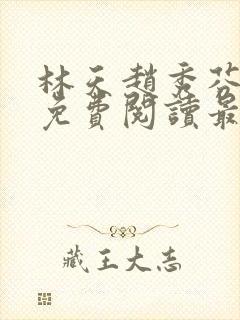 林天趙秀芬
免費閱讀最
藏王大志